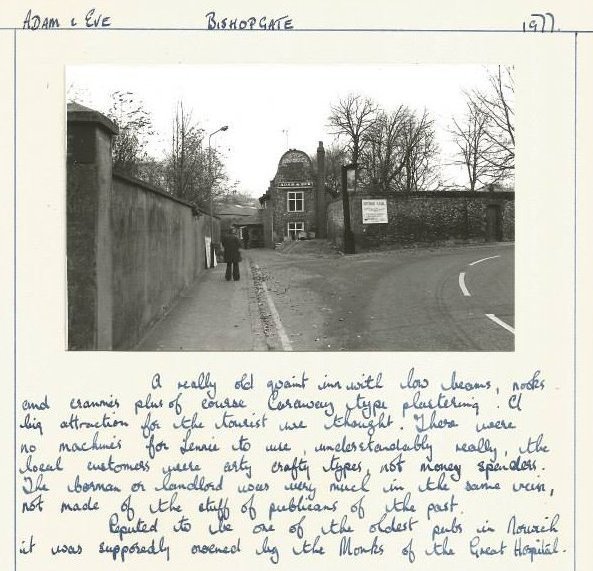 ADAM & EVE BISHOPGATE 1977.
ADAM & EVE
A really old quaint inn with low beams, nooks
and crannies plus of course Caraway type plastering. A
big attraction for the tourist we thought. There were
no machines for Lennie to use, understandably really, the
local customers were arty crafty types, not money spenders.
The barman or landlord was very much in the same vein,
not made of the stuff of publicans of the past.
Reputed to be one of the oldest pubs in Norwich
it was supposedly owned by the Monks of the Great Hospital.